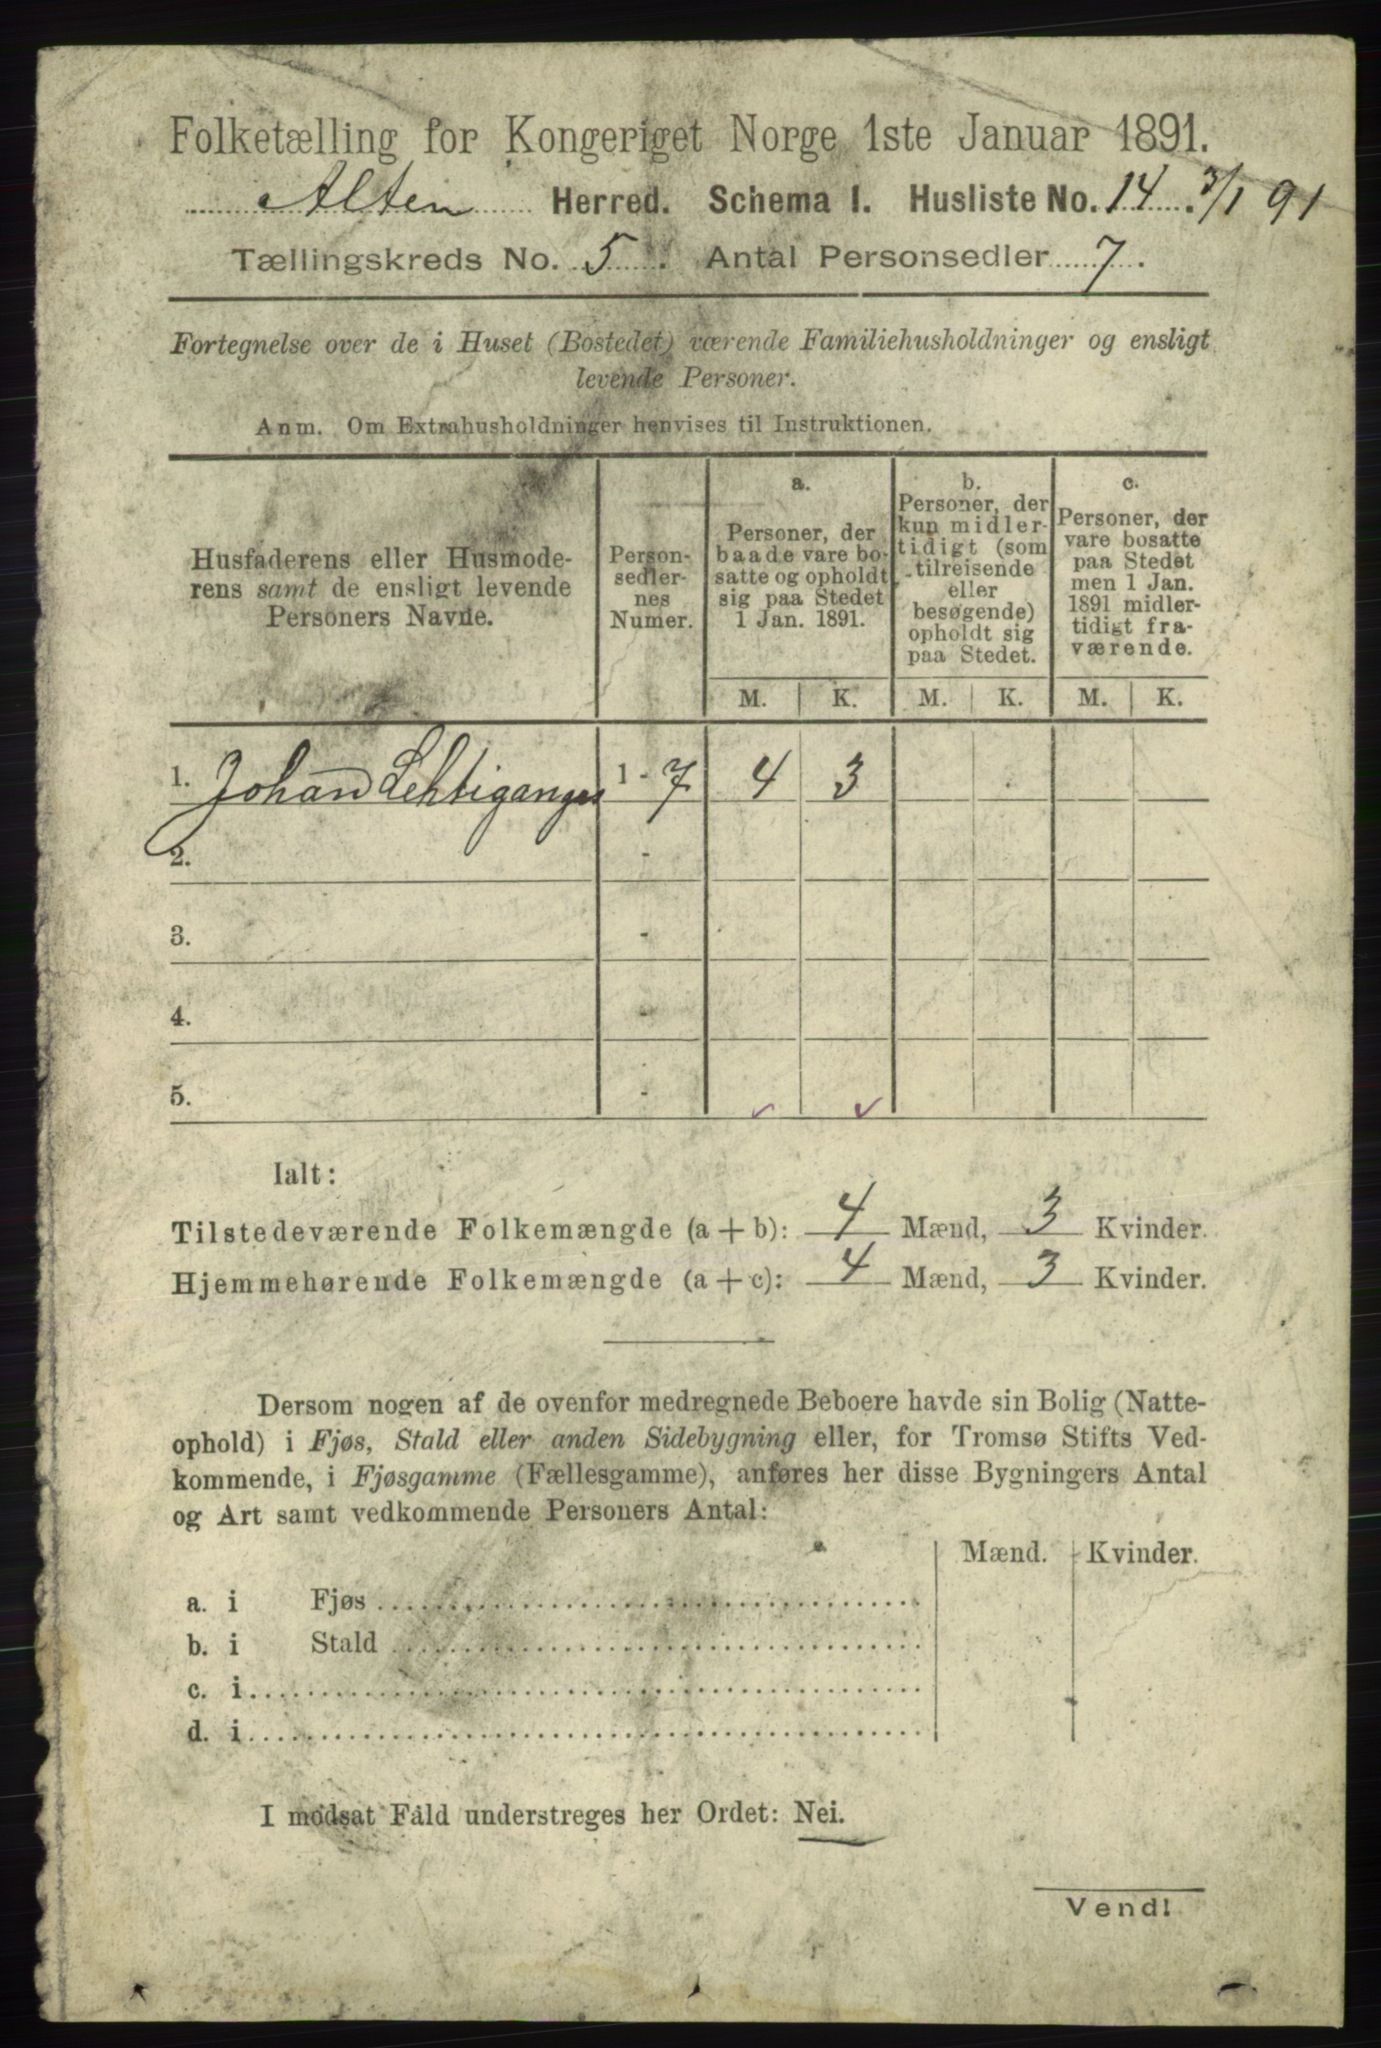 Folketælling for Kongeriget Norge 1ste Januar 1891.
Alten Herred. Schema I. Husliste No. 14. 3/1 91
Tællingskreds No. 5. Antal Personsedler 7.
Fortegnelse over de i Huset (Bostedet) værende Familiehusholdninger og ensligt
levende Personer.
Anm. Om Extrahusholdninger henvises til Instruktionen.
Husfaderens eller Husmode-
rens samt de ensligt levende
Personers Navne.
Person-
sedler-
nes
Numer.
a.
Personer, der
baade vare bo-
satte og opholdt
sig paa Stedet
1 Jan. 1891.
b.
Personer, der
kun midler-
tidigt (som
tilreisende
eller
besøgende)
opholdt sig
paa Stedet.
c.
Personer, der
vare bosatte
paa Stedet
men 1 Jan.
1891 midler-
tidigt fra-
værende.
M. K. M. K. M. K.
1. Johan Lehtiganges 1 - 7 4 3
2. -
3. -
4. -
5. -
Ialt:
Tilstedeværende Folkemængde (a + b): 4 Mænd, 3 Kvinder.
Hjemmehørende Folkemængde (a + c): 4 Mænd, 3 Kvinder.
Dersom nogen af de ovenfor medregnede Beboere havde sin Bolig (Natte-
ophold) i Fjøs, Stald eller anden Sidebygning eller, for Tromsø Stifts Ved-
kommende, i Fjøsgamme (Fællesgamme), anføres her disse Bygningers Antal
og Art samt vedkommende Personers Antal:
Mænd. Kvinder.
a. i Fjøs
b. i Stald
c. i
d. i
I modsat Fald understreges her Ordet: Nei.
Vend!